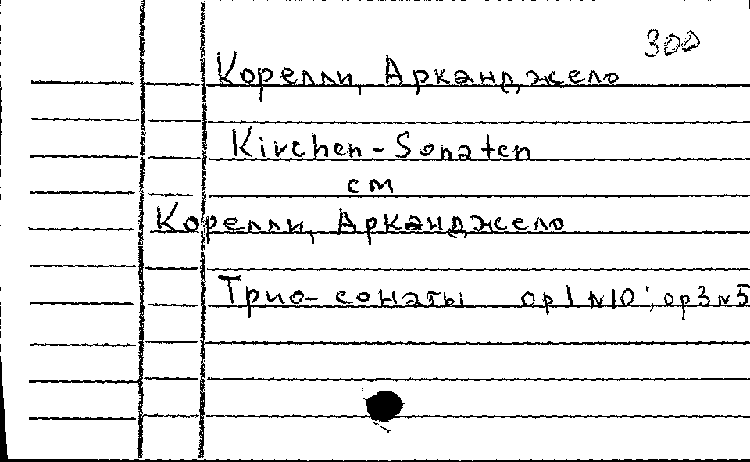 300
Корелли, Арканджело
Kirchen-Sonaten
см
Корелли, Арканджело
Трио-сонаты ор1 №10; ор3 №5